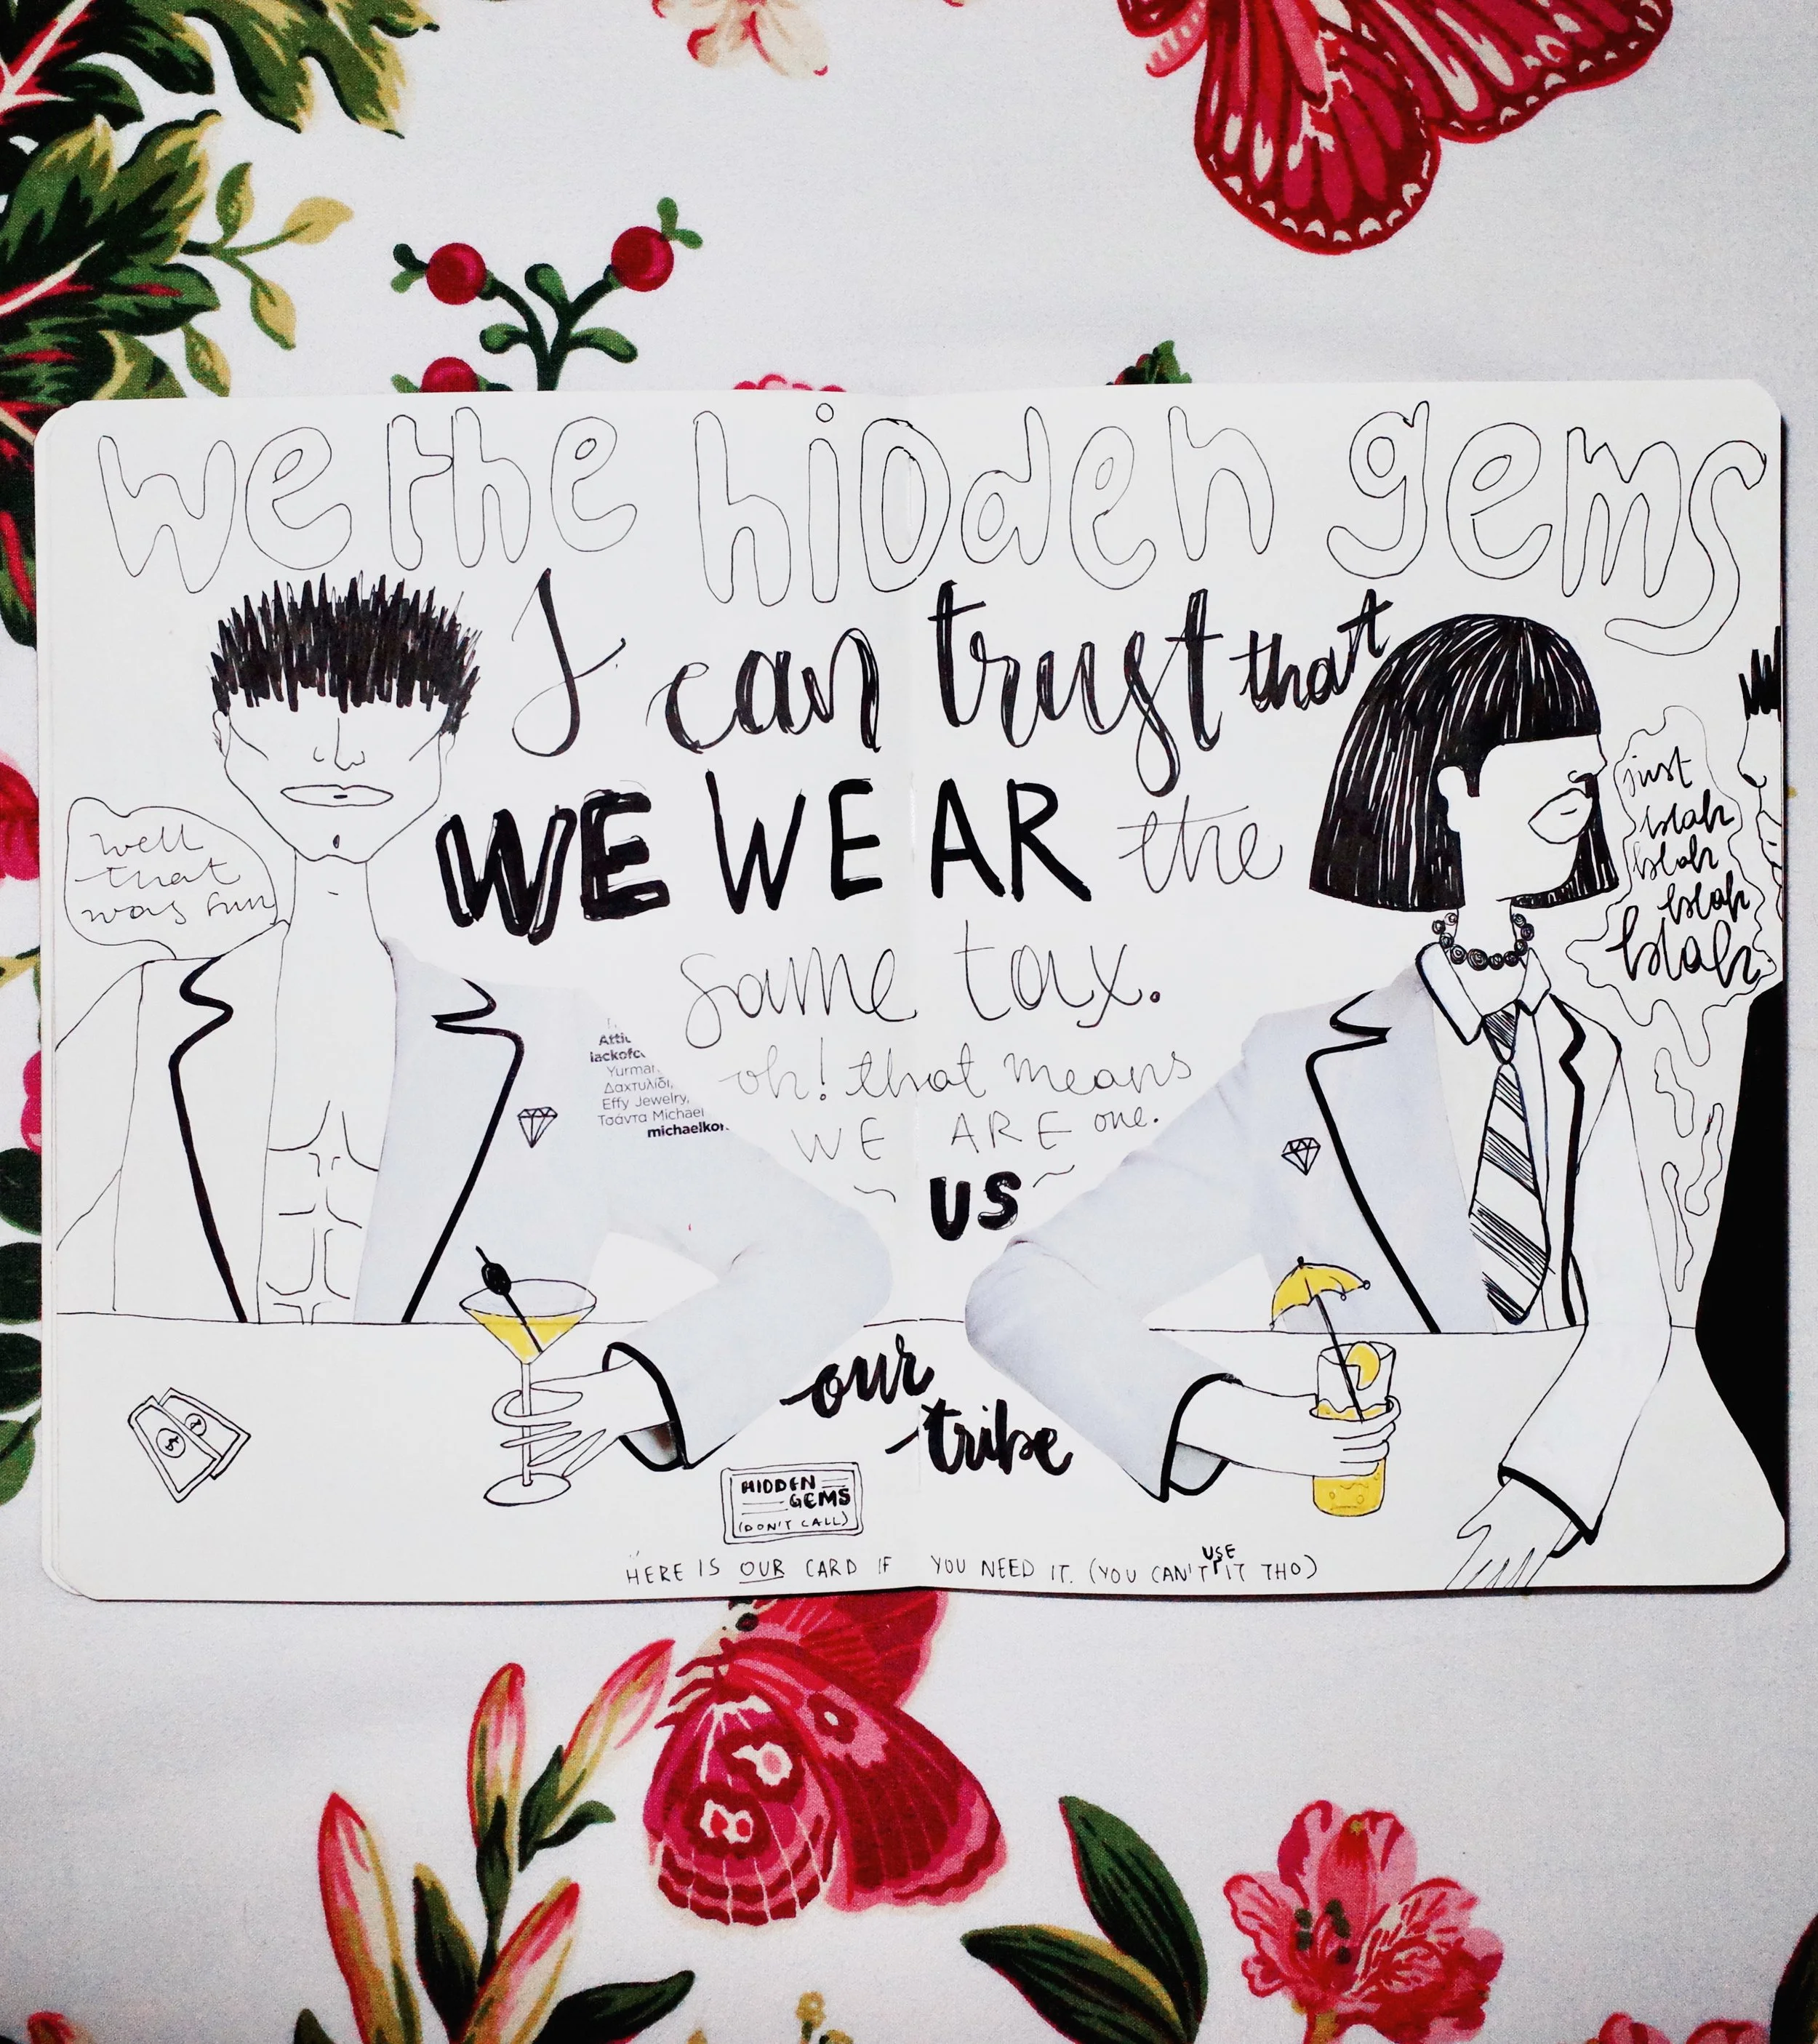 we the hidden gems
I can trust that
WE WEAR the
same tax.
oh! that means
WE ARE one.
~ US ~
our
tribe
well
that
was fun
just
blah
blah
blah
blah
lackofc
Yurman
Δαχτυλίδι,
Effy Jewelry,
Τσάντα Michael
michaelkor
HIDDEN
GEMS
(DON'T CALL)
HERE IS OUR CARD IF YOU NEED IT. (YOU CAN'T USE IT THO)